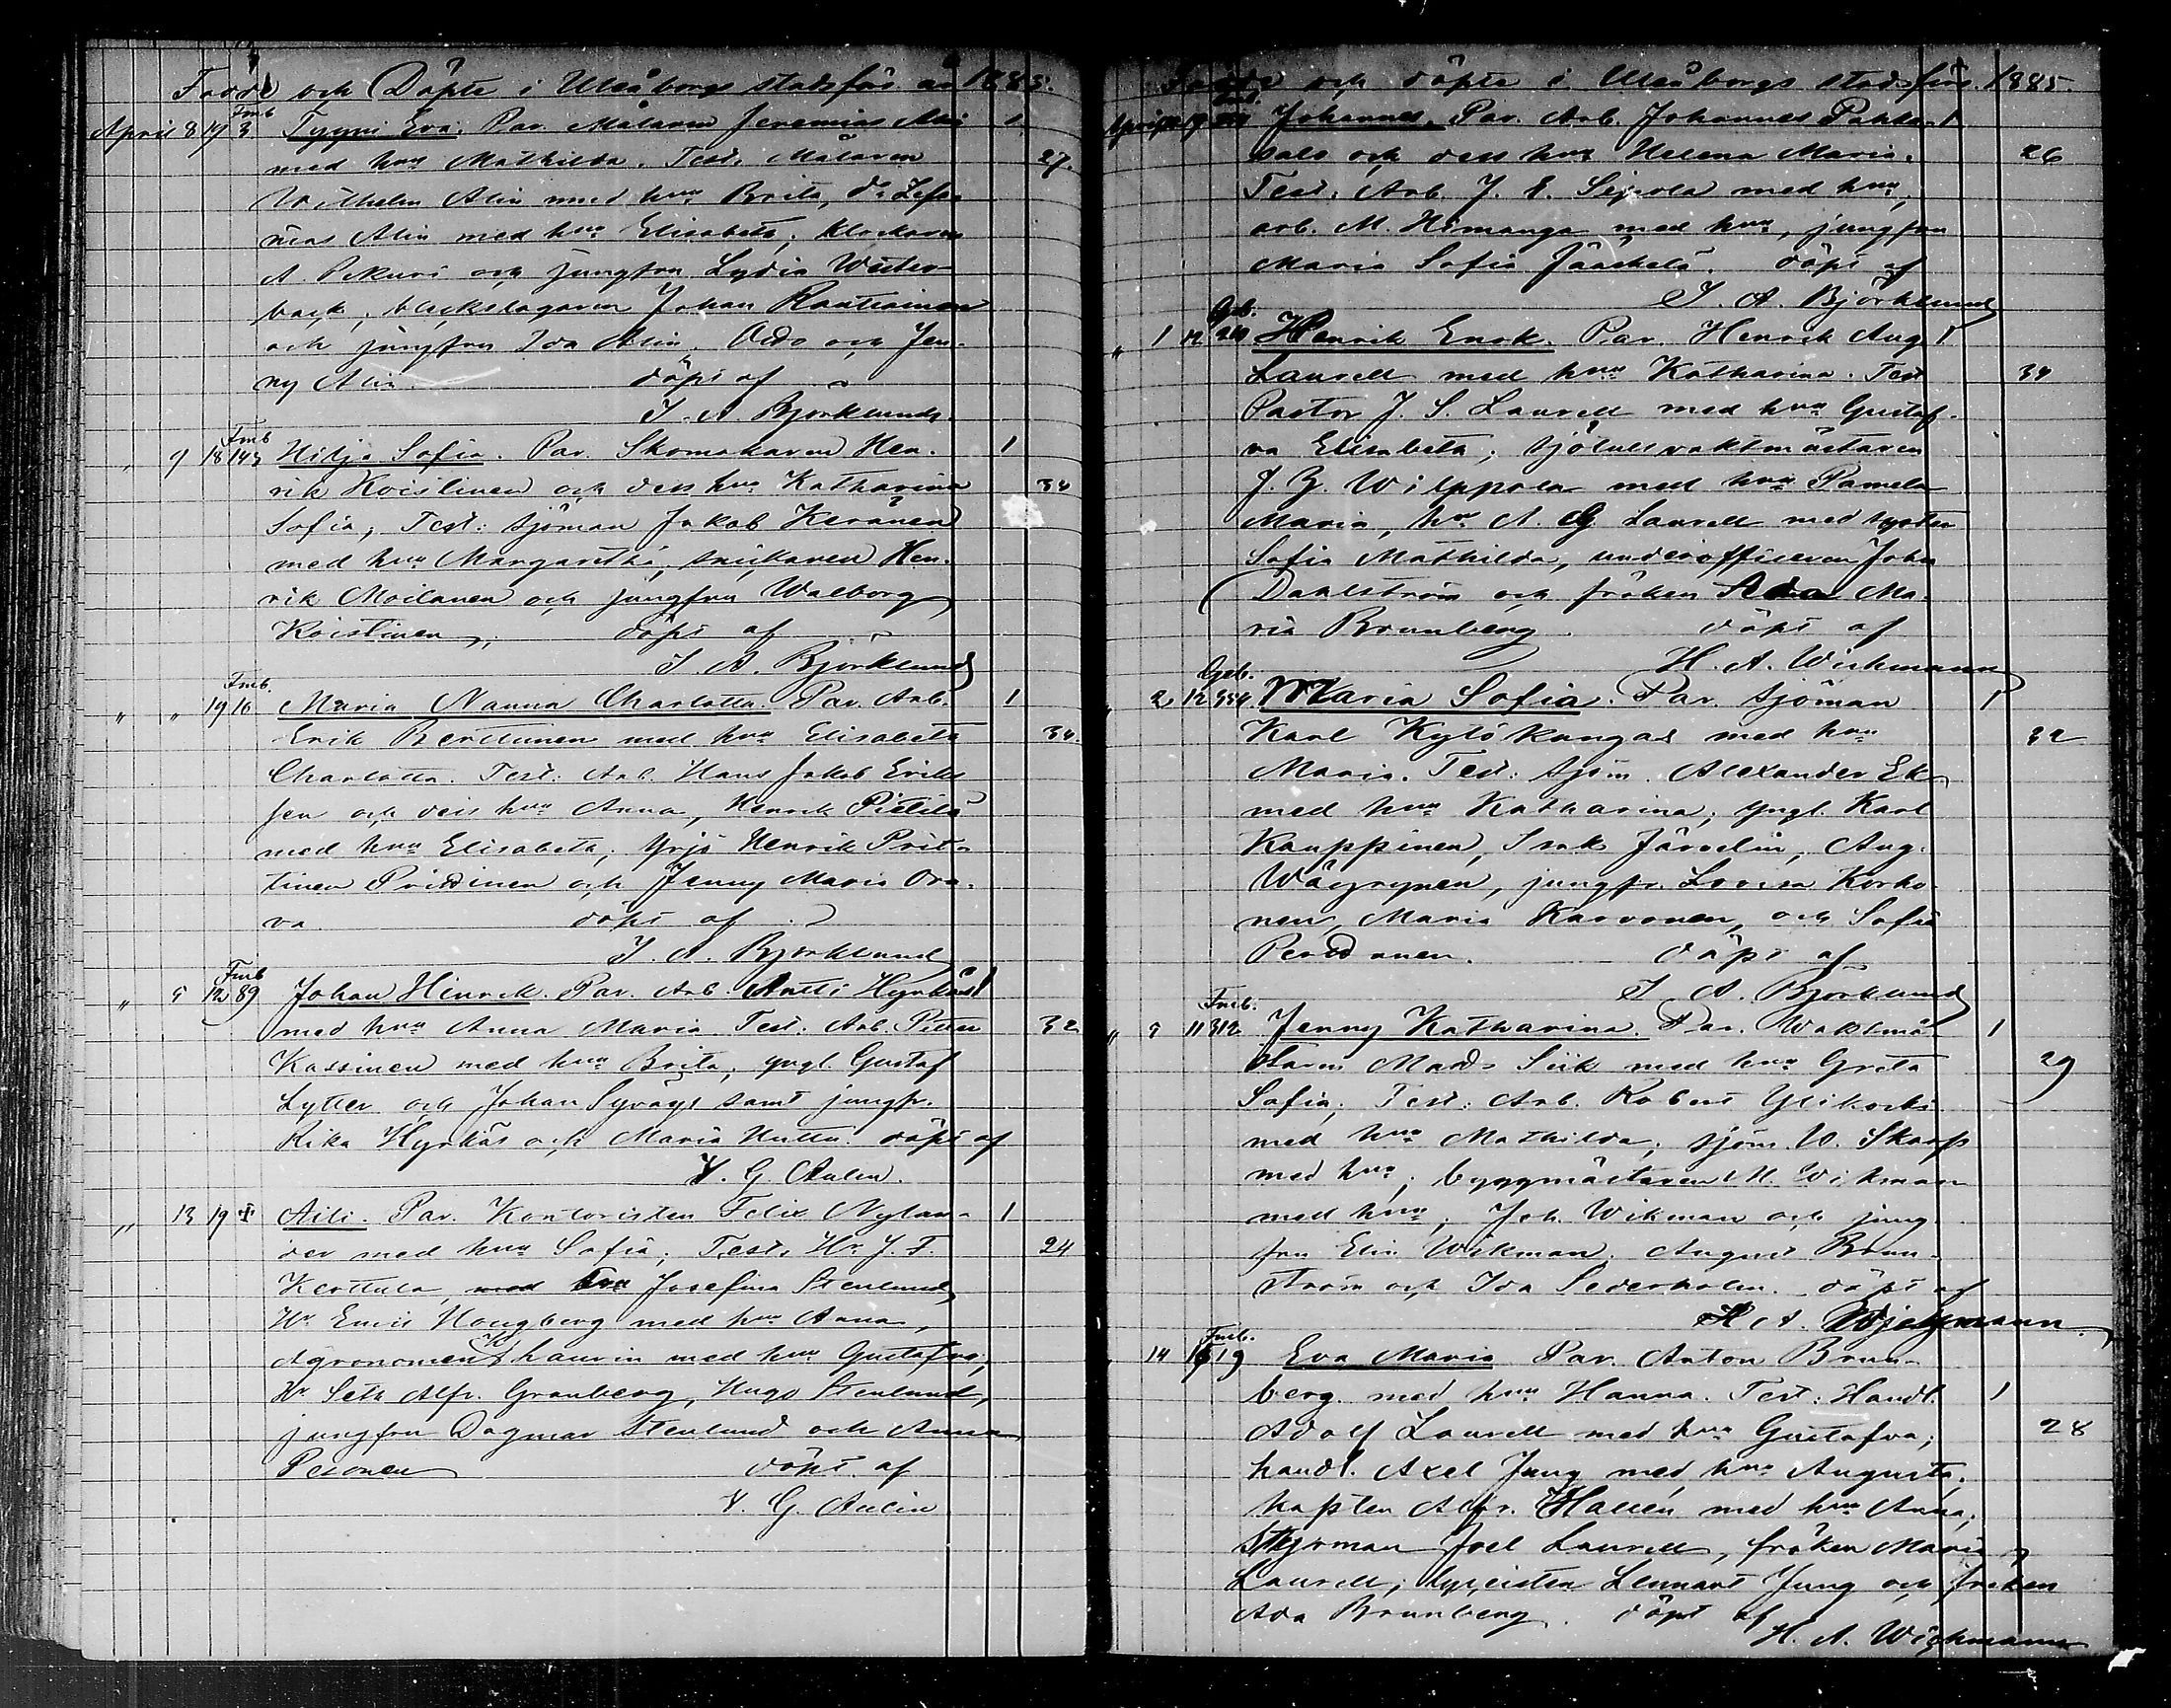 Födde och Döpte i Uleåborgs stadsförs. år 1885.
April 8 17 Fmb 3. Tyyni Eva. Par. Målaren Jeremias Alin 1
med hu Mathilda. Test. Målaren 27.
Wilhelm Alin med hu Brita, do Zefa-
nias Alin med hu Elisabeta; klockaren
A. Pekuri och jungfru Lydia Wester-
back, bleckslagaren Johan Rautiainen
och jungfru Ida Alin. Aldo och Jen-
ny Alin. döpt af
J. A. Björklund.
" 9 18 Fmb 143 Hilja Sofia. Par. Skomakaren Hen- 1
rik Koistinen och dess hu Katharina 34
Sofia; Test: sjöman Jakob Keränen
med hu Margaretha; snickaren Hen-
rik Moilanen och jungfru Walborg
Koistinen; döpt af
J. A. Björklund
" " 19 Fmb. 16 Maria Nanna Charlotta. Par. Arb. 1
Erik Berttunen med hu Elisabeta 34.
Charlotta. Test: Arb. Hans Jakob Eriks
sen och dess hu Anna, Henrik Pietilä
med hu Elisabeta; Yrjö Henrik Prit-
tinen Priddinen och Jenny Maria Ora-
va. döpt af
J. A. Björklund
" 5 12 Fmb 89 Johan Hinrik. Par. Arb. Antti Hyrkäs 1
med hu Anna Maria. Test: Arb. Petter 32
Kassinen med hu Brita; yngl. Gustaf
Lytter och Johan Syväys samt jungfr.
Rika Hyrkäs och Maria Huttu. döpt af
V. G. Aulin.
" 13 19 Aili. Par. Kontoristen Felix Nylan- 1
der med hu Sofia; Test. Hr J. F. 24
Kerttula, med Fru Josefina Stenlund,
Hr Emil Hougberg med hu Anna,
Agronomen Thaurin med hu Gustafva;
Hr Seth Alfr. Granberg, Hugo Stenlund,
jungfru Dagmar Stenlund och Anna
Pesonen döpt af
V. G. Aulin
Födde och döpte i Uleåborgs stadsförs. 1885.
April Johannes. Par. Arb. Johannes Pakka- 1
salo och dess hu Helena Maria. 26
Test: Arb. J. E. Sipola med hu,
arb. M. Himanga med hu, jungfru
Maria Sofia Jääskelä. döpt af
J. A. Björklund
" 1 12 Geb. 20 Henrik Enok. Par. Henrik Aug. 1
Laurell med hu Katharina. Test 34
Pastor J. S. Laurell med hu Gustaf-
va Elisabeta; sjötullvaktmästaren
J. Z. Wilppola med hu Pamela
Maria, hr A. G. Laurell med syster
Sofia Mathilda, underofficeren John
Dahlström och fröken Ada Ma-
ria Brunberg. döpt af
H. A. Wichmann
" 2 12 Geb. 354 Maria Sofia. Par. sjöman 1
Karl Kylökangas med hu 32
Maria. Test: sjöm. Alexander Ek
med hu Katharina; yngl. Karl
Kauppinen, Isak Järvelin, Aug.
Wäyrynen, jungfr. Lovisa Korho-
nen, Maria Karvonen, och Sofia
döpt af
J. A. Björklund
" 9 11 Fmb. 312 Jenny Katharina. Par. Waktmä- 1
staren Mats Siik med hu Greta 29
Sofia; Test: Arb. Robert Ylikorki
med hu Mathilda; sjöm. W. Skarp
med hu; byggmästaren M. Wikman
med hu; Joh. Wikman och jung-
fru Elin Wikman. August Brun-
ström och Ida Sederholm. döpt af
H. A. Wichmann.
14 Fmb. 19 Eva Maria Par. Anton Brun-
berg med hu Hanna. Test: Handl. 1
Adolf Laurell med hu Gustafva; 28
handl. Axel Jung med hu Augusta;
kapten Alfr. Hallén med hu Anna;
Styrman Joel Laurell, fröken Maria
Laurell; lyceisten Lennart Jung och fröken
Ada Brunberg. döpt af
H. A. Wichmann